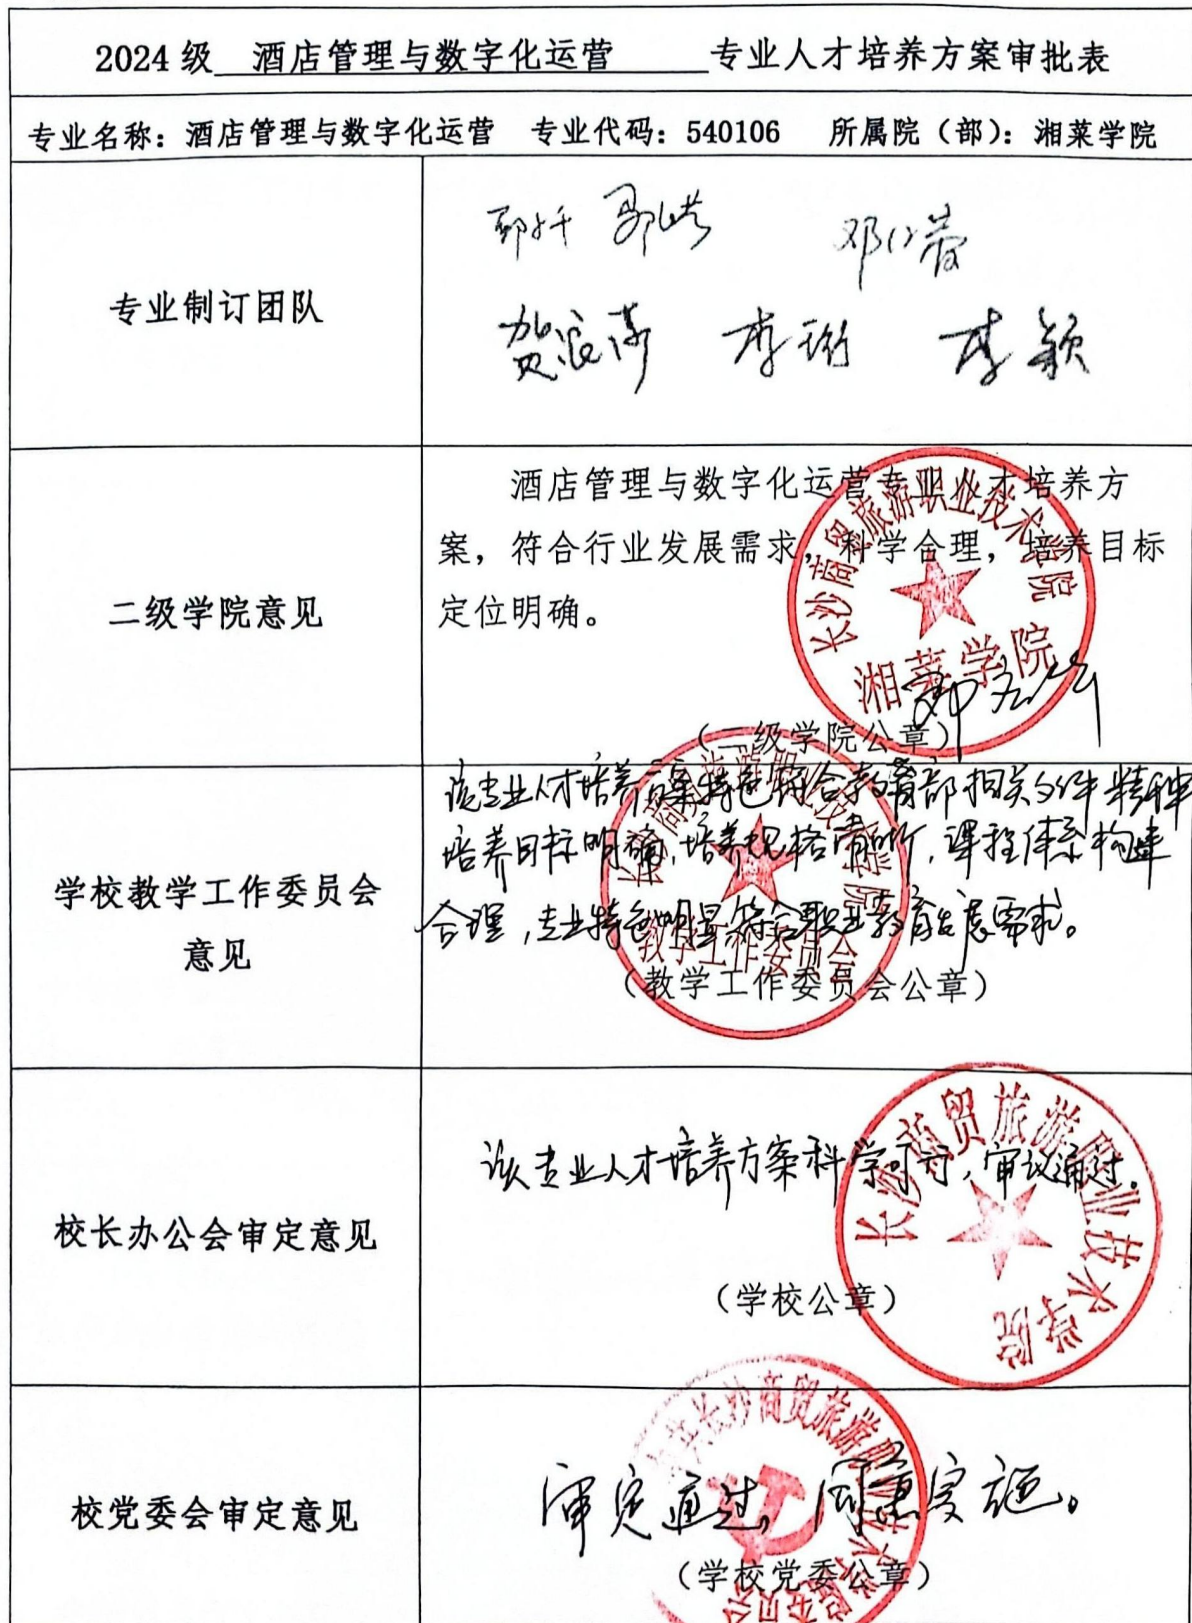 2024级 酒店管理与数字化运营 专业人才培养方案审批表
专业名称：酒店管理与数字化运营 专业代码：540106 所属院（部）：湘菜学院
专业制订团队
李颖
二级学院意见
酒店管理与数字化运营专业人才培养方
案，符合行业发展需求，科学合理，培养目标
定位明确。
长沙商贸旅游职业技术学院
湘菜学院
（二级学院公章）
学校教学工作委员会
意见
该专业人才培养方案特色符合教育部相关文件精神
培养目标明确，培养规格清晰，课程体系构建
合理，专业特色明显符合职业教育发展需求。
教学工作委员会
（教学工作委员会公章）
校长办公会审定意见
该专业人才培养方案科学可行，审议通过。
长沙商贸旅游职业技术学院
（学校公章）
校党委会审定意见
审定通过，同意实施。
（学校党委公章）